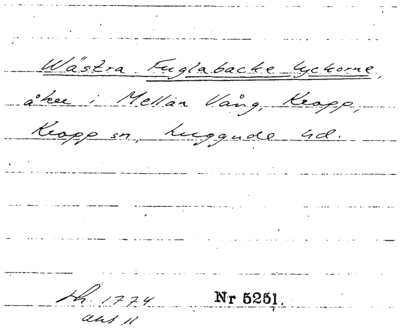 Wästra Fuglabacke lyckorne,
åker i Mellan Vång, Kropp,
Kropp sn, Luggude hd.
Sk. 1774 Nr 5251.
akt 11